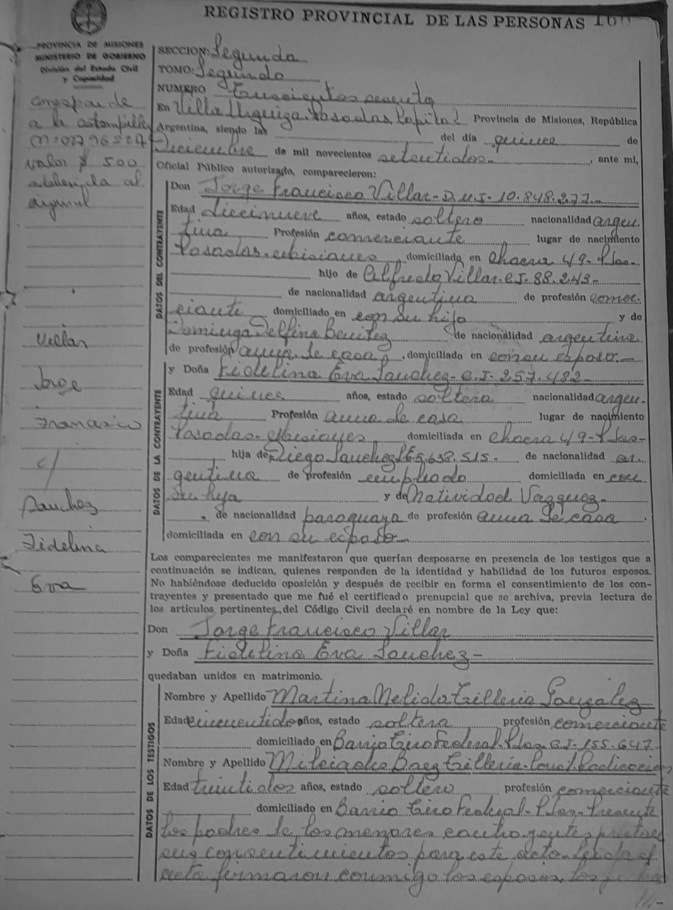 REGISTRO PROVINCIAL DE LAS PERSONAS
PROVINCIA DE MISIONES
MINISTERIO DE GOBIERNO
División del Estado Civil
y Capacidad
corresponde
a la estampilla
valor $ 500
Villar
Jorge
Francisco
c/
Sanchez
Fidelina
Eva
SECCION: Segunda
TOMO: Segundo
NUMERO Trescientos sesenta
En Villa Urquiza Posadas Capital Provincia de Misiones, República
Argentina, siendo las del día quince de
Diciembre de mil novecientos setentidos, ante mi,
Oficial Público autorizado, comparecieron:
DATOS DEL CONTRAYENTE
Don Jorge Francisco Villar - D.N.I. 10.848.277
Edad diecinueve años, estado soltero nacionalidad argen
tina Profesión comerciante lugar de nacimiento
Posadas - Misiones, domiciliado en Chacra 49 - Pdas-
hijo de Alfredo Villar. C.I. 88.243-
de nacionalidad argentina de profesión comer
ciante domiciliado en con su hijo y de
Dominga Delfina Benitez de nacionalidad argentina
de profesión ama de casa, domiciliado en con su esposo
DATOS DE LA CONTRAYENTE
y Doña Fidelina Eva Sanchez - C.I. 257.482
Edad quince años, estado soltera nacionalidad argen-
tina Profesión ama de casa lugar de nacimiento
Posadas - Misiones domiciliada en Chacra 49 - Pdas-
hija de Diego Sanchez 5.638.515. de nacionalidad ar-
gentina de profesión empleado domiciliada en con
su hija y de Natividad Vazquez-
de nacionalidad paraguaya de profesión ama de casa,
domiciliada en con su esposo
Los comparecientes me manifestaron que querían desposarse en presencia de los testigos que a
continuación se indican, quienes responden de la identidad y habilidad de los futuros esposos.
No habiéndose deducido oposición y después de recibir en forma el consentimiento de los con-
trayentes y presentado que me fué el certificado prenupcial que se archiva, previa lectura de
los artículos pertinentes del Código Civil declaré en nombre de la Ley que:
Don Jorge Francisco Villar
y Doña Fidelina Eva Sanchez-
quedaban unidos en matrimonio.
DATOS DE LOS TESTIGOS
Nombre y Apellido Martina Nelida Trilleria Gonzalez
Edad cincuentidos años, estado soltera profesión comerciante
domiciliado en Barrio Tiro Federal - Pdas C.I. 155.647
Nombre y Apellido Milciades Baez Trilleria
Edad treintidos años, estado soltero profesión comerciante
domiciliado en Barrio Tiro Federal - Pdas - Presente
los padres de los menores contrayentes prestan
sus consentimientos para este acto. Leida el
acta firmaron conmigo los esposos, los